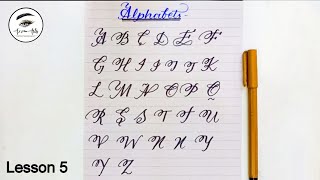 Alphabets
A B C D E F
G H I J K
L M N O P Q
R S S T F U
V W N X Y
Y Z
Lesson 5